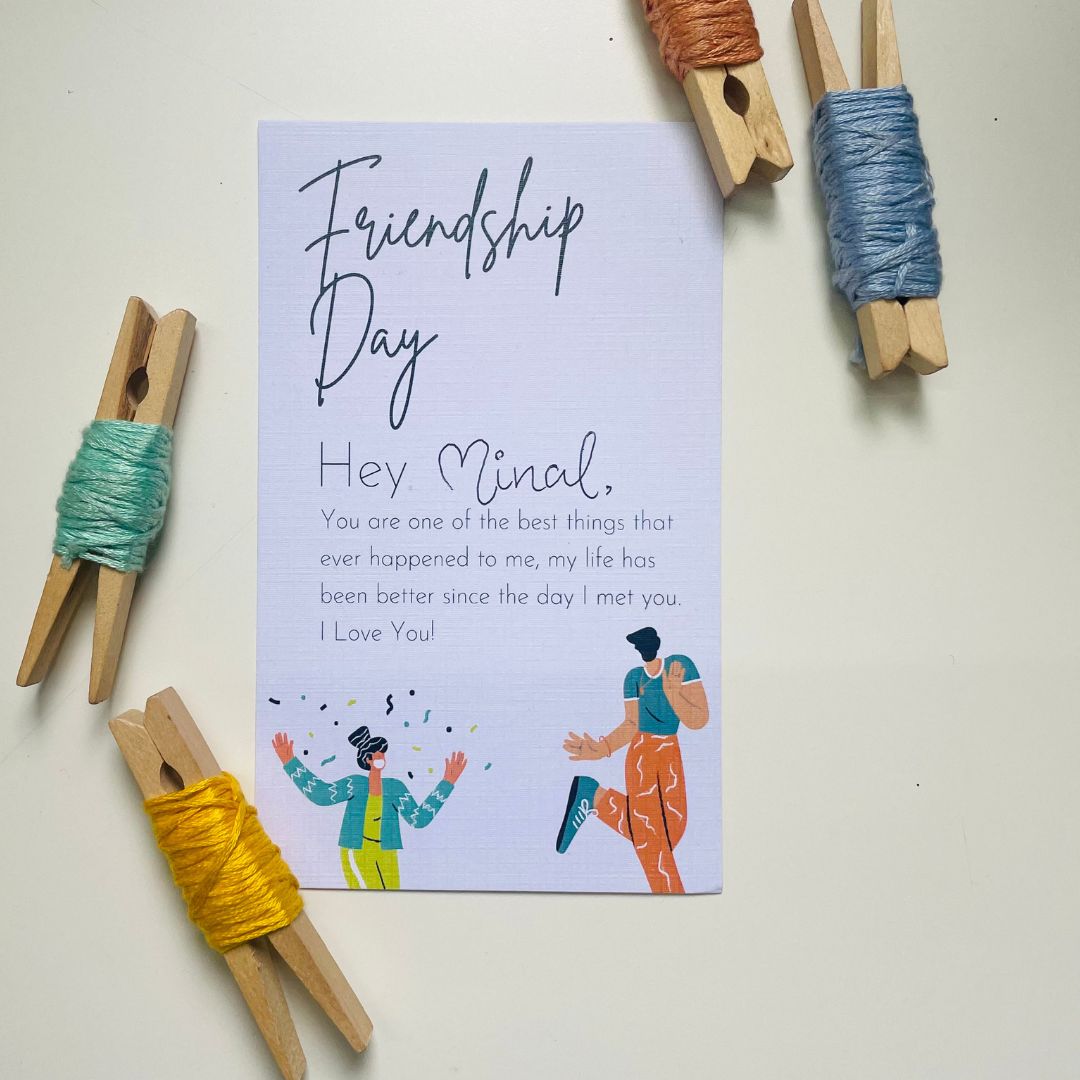 Friendship
Day
Hey Minal,
You are one of the best things that
ever happened to me, my life has
been better since the day I met you.
I Love You!